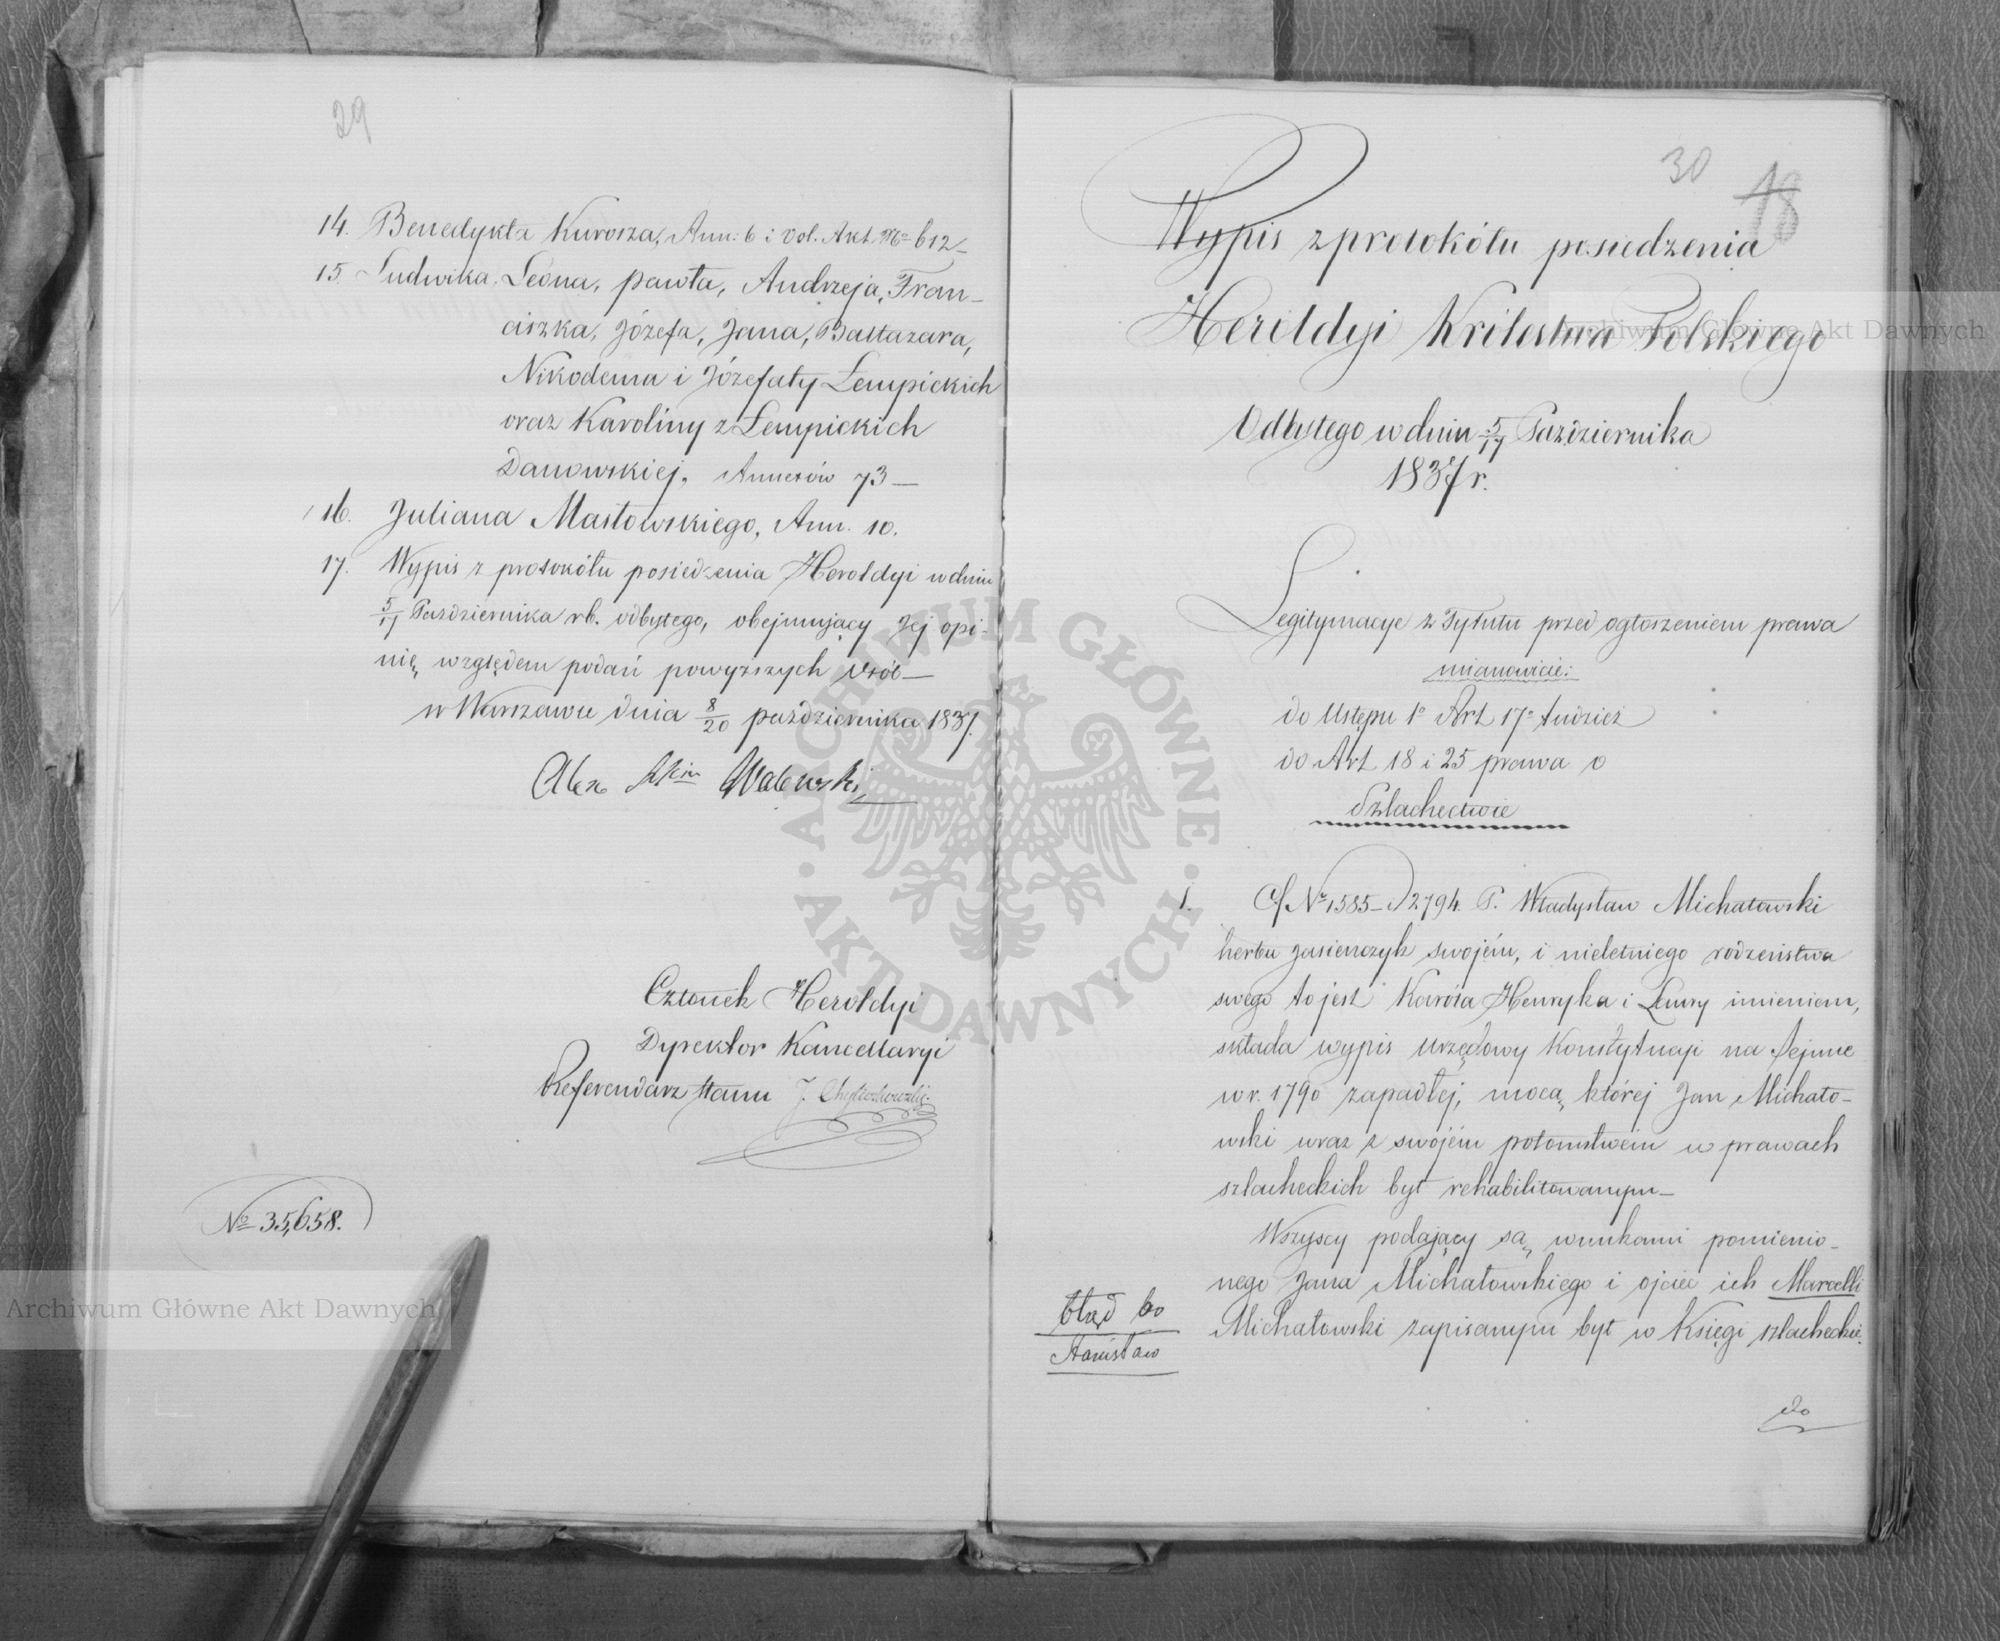 29
14. Benedykta Kurosza, Ann: 6 i vol. Akt. № 612_
15. Ludwika, Leona, pawła, Andrzeja, Fran-
ciszka, Józefa, Jana, Baltazara,
Nikodema i Józefaty Łempickich
oraz Karoliny z Łempickich
Danowskiej, Annexów 73_
16. Juliana Masłowskiego, Ann. 10.
17. Wypis z protokółu posiedzenia Heroldyi w dniu
5/17 Października rb. odbytego, obejmujący Jej opi-
nię względem podań powyższych osób_
w Warszawie dnia 8/20 października 1837.
Alex Walewski
Członek Heroldyi
Dyrektor Kancellaryi
Referendarz Stanu J.
№ 35,658.
30 18
Wypis z protokółu posiedzenia
Heroldyi Królestwa Polskiego
Odbytego w dniu 5/17 Października
1837 r.
Legitymacye z Tytułu przed ogłoszeniem prawa
mianowicie:
do Ustępu 1o Art 17o tudzież
do Art 18 i 25 prawa o
Szlachectwie
1. Nr 1585 2794. P. Władysław Michałowski
herbu Jasieńczyk swojém, i nieletniego rodzeństwa
swego to jest Karóla Henryka i Laury imieniem,
składa wypis urzędowy Konstytucyi na Sejmie
w r. 1790 zapadłej, mocą której Jan Michało-
wski wraz z swojém potomstwem w prawach
szlacheckich był rehabilitowanym_
Wszyscy podający są wnukami pomienio-
nego Jana Michałowskiego i ojciec ich Marcelli
Michałowski zapisanym był w Księgi szlacheckie
błąd bo
Stanisław
do
Archiwum Główne Akt Dawnych
Archiwum Główne Akt Dawnych
ARCHIWUM GŁÓWNE AKT DAWNYCH